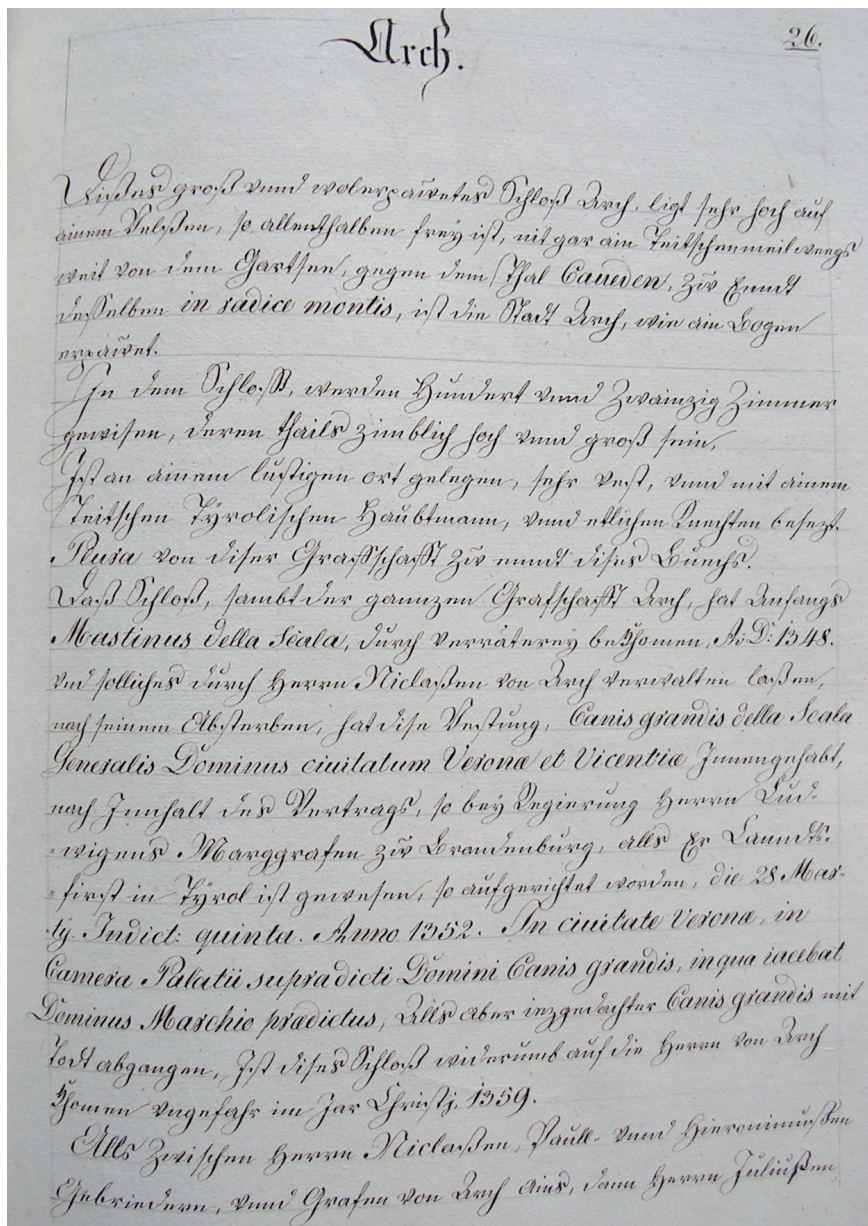 Arch.
26.
Dißes groß vnnd wolerpawetes Schloß Arch, ligt sehr hoch auf
ainem Velßen, so allenthalben frey ist, nit gar ain Teitschenmeil weegs
weit von dem Gartsee, gegen dem Thal Caueden, zŭ Ennd
desselben in radice montis, ist die Stadt Arch, wie ain Bogen
erpawet.
In dem Schloß, werden Hundert vnnd Zwainzig Zimmer
gewisen, deren thails zimblich hoch vnnd groß sein,
Ist an ainem lustigen ort gelegen, sehr vest, vnnd mit ainem
Teitschen Tÿrolischen Haubtmann, vnnd etlichen Knechten besezt.
Plura von diser Graffschafft zŭ ennd dises Buechs.
Daß Schloß, sambt der gannzen Grafschafft Arch, hat Anfangs
Mastinus della Scala, durch verräterey bekhomen, A: D: 1348.
vnd solliches durch Herrn Niclaßen von Arch verwalten laßen,
nach seinem Absterben, hat dise Vestung, Canis grandis della Scala
Generalis Dominus ciuitatum Veronæ et Vicentiæ Innengehabt,
nach Innhalt des Vertrags, so bey Regierung Herrn Lud-
-wigens Marggrafen zŭ Brandenburg, alls Er Lanndts-
-first in Tÿrol ist gewesen, so aufgerichtet worden, die 28 Mar-
-tÿ. Indict: quinta. Anno 1352. In ciuitate Veronæ, in
Camera Palatii supradicti Domini Canis grandis, in qua iacebat
Dominus Marchio prædictus, Alls aber iezgedachter Canis grandis mit
Todt abgangen, Ist dises Schloß widerumb auf die Herrn von Arch
khomen vngefahr im Jar Christj, 1359.
Alls Zwischen Herrn Niclaßen, Paull- vnnd Hieronimußen
Gebriedern, vnnd Grafen von Arch ains, dann Herrn Juliußen